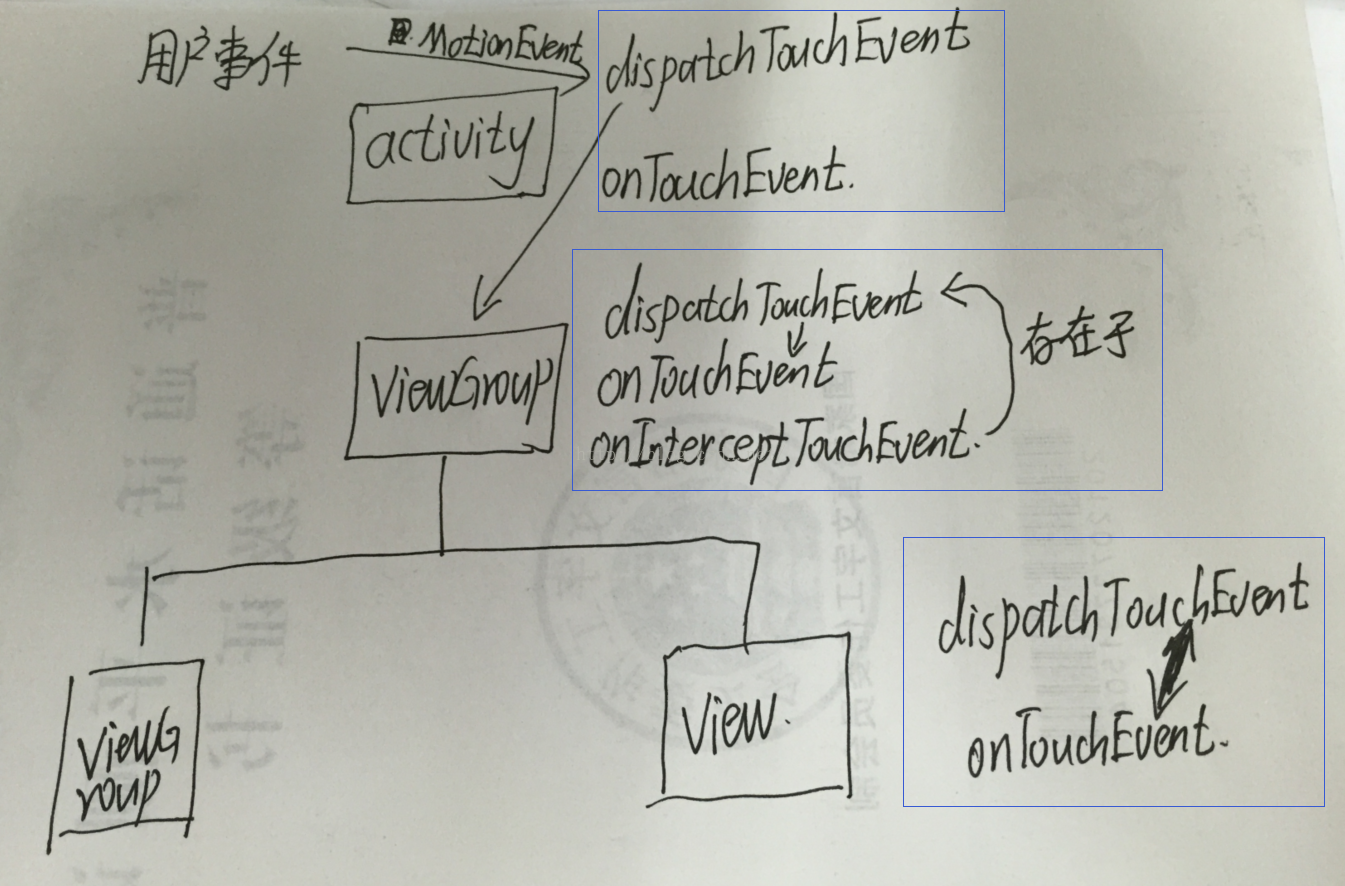 用户事件
MotionEvent
dispatchTouchEvent
activity
onTouchEvent.
dispatchTouchEvent
存在于
ViewGroup
onTouchEvent
onInterceptTouchEvent.
dispatchTouchEvent
ViewG
roup
View.
onTouchEvent.